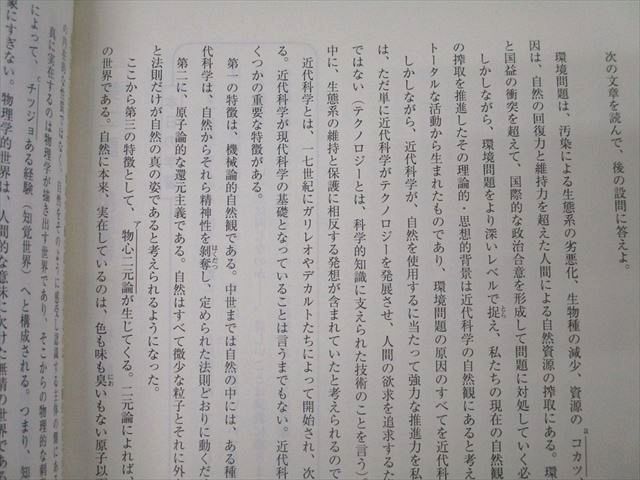 次の文章を読んで、後の設問に答えよ。
環境問題は、汚染による生態系の劣悪化、生物種の減少、資源の a コカツ、
因は、自然の回復力と維持力を超えた人間による自然資源の搾取にある。環
と国益の衝突を超えて、国際的な政治合意を形成して問題に対処していく必
しかしながら、環境問題をより深いレベルで捉え、私たちの現在の自然観
の搾取を推進したその理論的・思想的背景は近代科学の自然観にあると考え
トータルな活動から生まれたものであり、環境問題の原因のすべてを近代科
しかしながら、近代科学が、自然を使用するに当たって強力な推進力を私
は、ただ単に近代科学がテクノロジーを発展させ、人間の欲求を追求するた
ではない(テクノロジーとは、科学的知識に支えられた技術のことを言う)
中に、生態系の維持と保護に相反する発想が含まれていたと考えられるので
近代科学とは、一七世紀にガリレオやデカルトたちによって開始され、次
る。近代科学が現代科学の基礎となっていることは言うまでもない。近代科
くつかの重要な特徴がある。
第一の特徴は、機械論的自然観である。中世までは自然の中には、ある種
代科学は、自然からそれら精神性を剝奪し、定められた法則どおりに動くだ
第二に、原子論的な還元主義である。自然はすべて微少な粒子とそれに外
と法則だけが自然の真の姿であると考えられるようになった。
ここから第三の特徴として、ア 物心二元論が生じてくる。二元論によれば、
の世界である。自然に本来、実在しているのは、色も味も臭いもない原子以
真に実在するのは物理学が描き出す世界であり、そこからの物理的な刺
によって、チツジョある経験(知覚世界)へと構成される。つまり、知
象にすぎない。物理学的世界は、人間的な意味に欠けた無情の世界であ